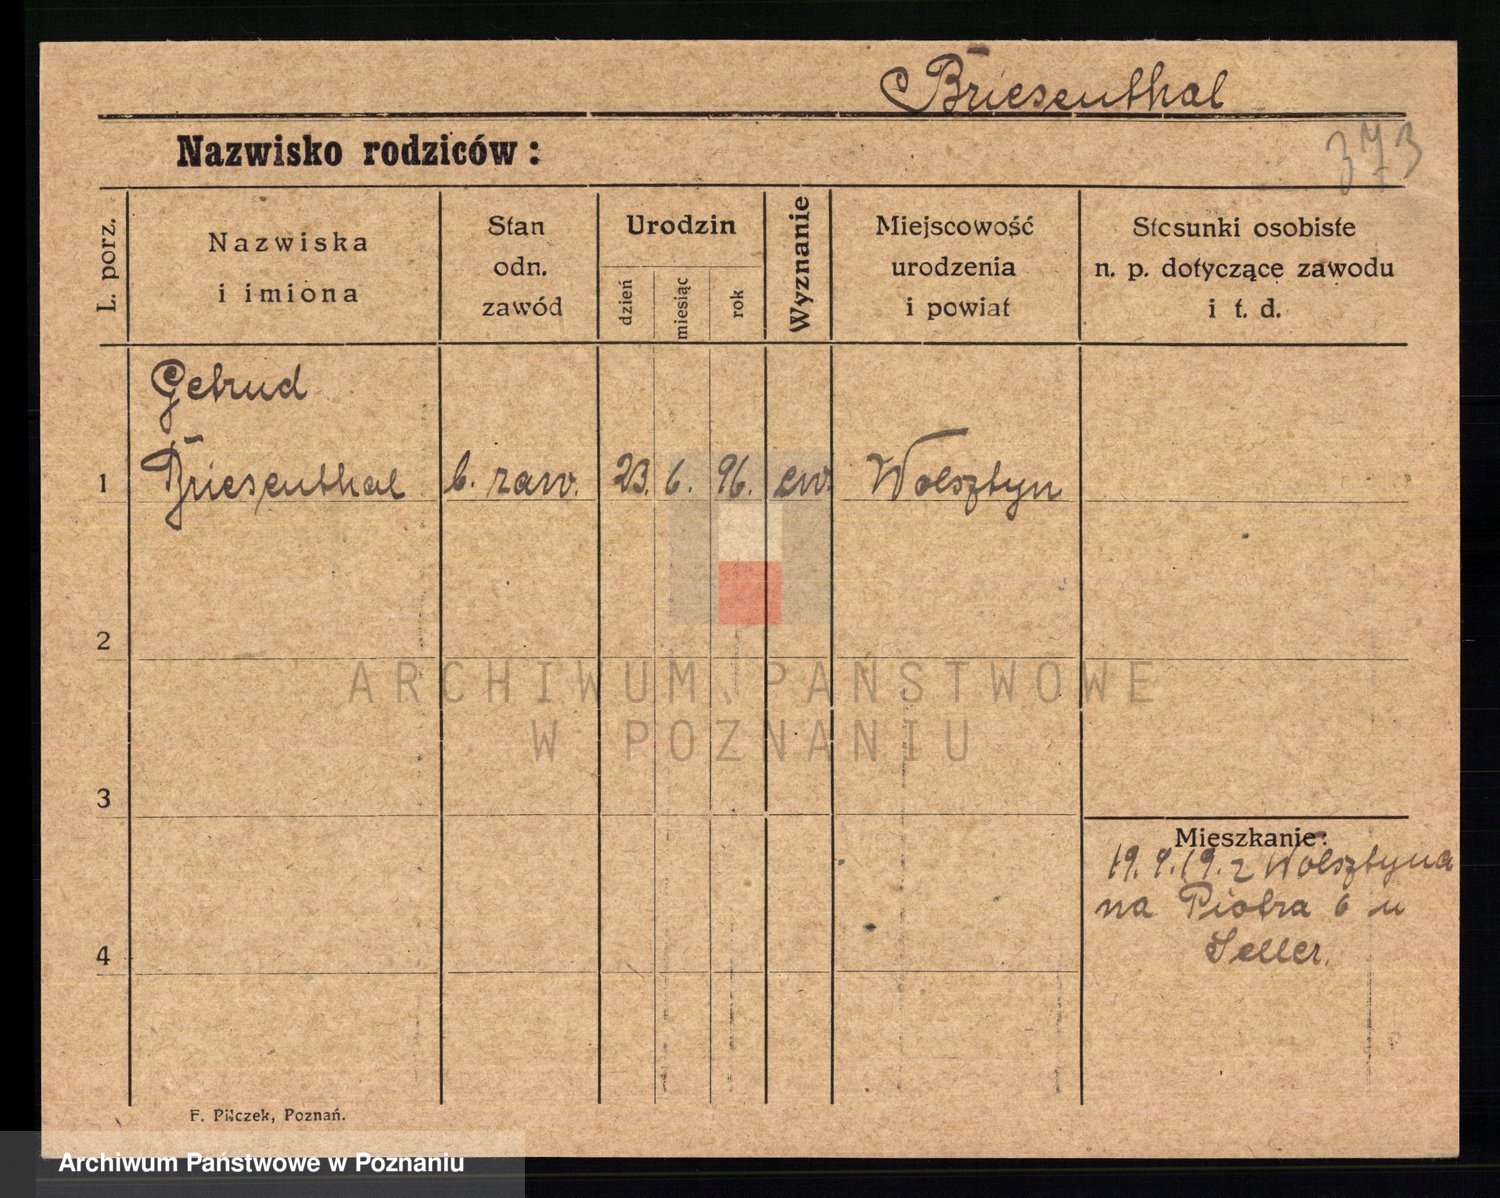 Briesenthal
373
Nazwisko rodziców:
L. porz.
Nazwiska
i imiona
Stan
odn.
zawód
Urodzin
dzień
miesiąc
rok
Wyznanie
Miejscowość
urodzenia
i powiat
Stosunki osobiste
n. p. dotyczące zawodu
i t. d.
Getrud
1 Briesenthal b. zaw. 23. 6. 96. ew. Wolsztyn
2
ARCHIWUM PAŃSTWOWE
W POZNANIU
3
Mieszkanie:
19. 9. 19. z Wolsztyna
na Piotra 6 u
4
Seller.
F. Pilczek, Poznań.
Archiwum Państwowe w Poznaniu